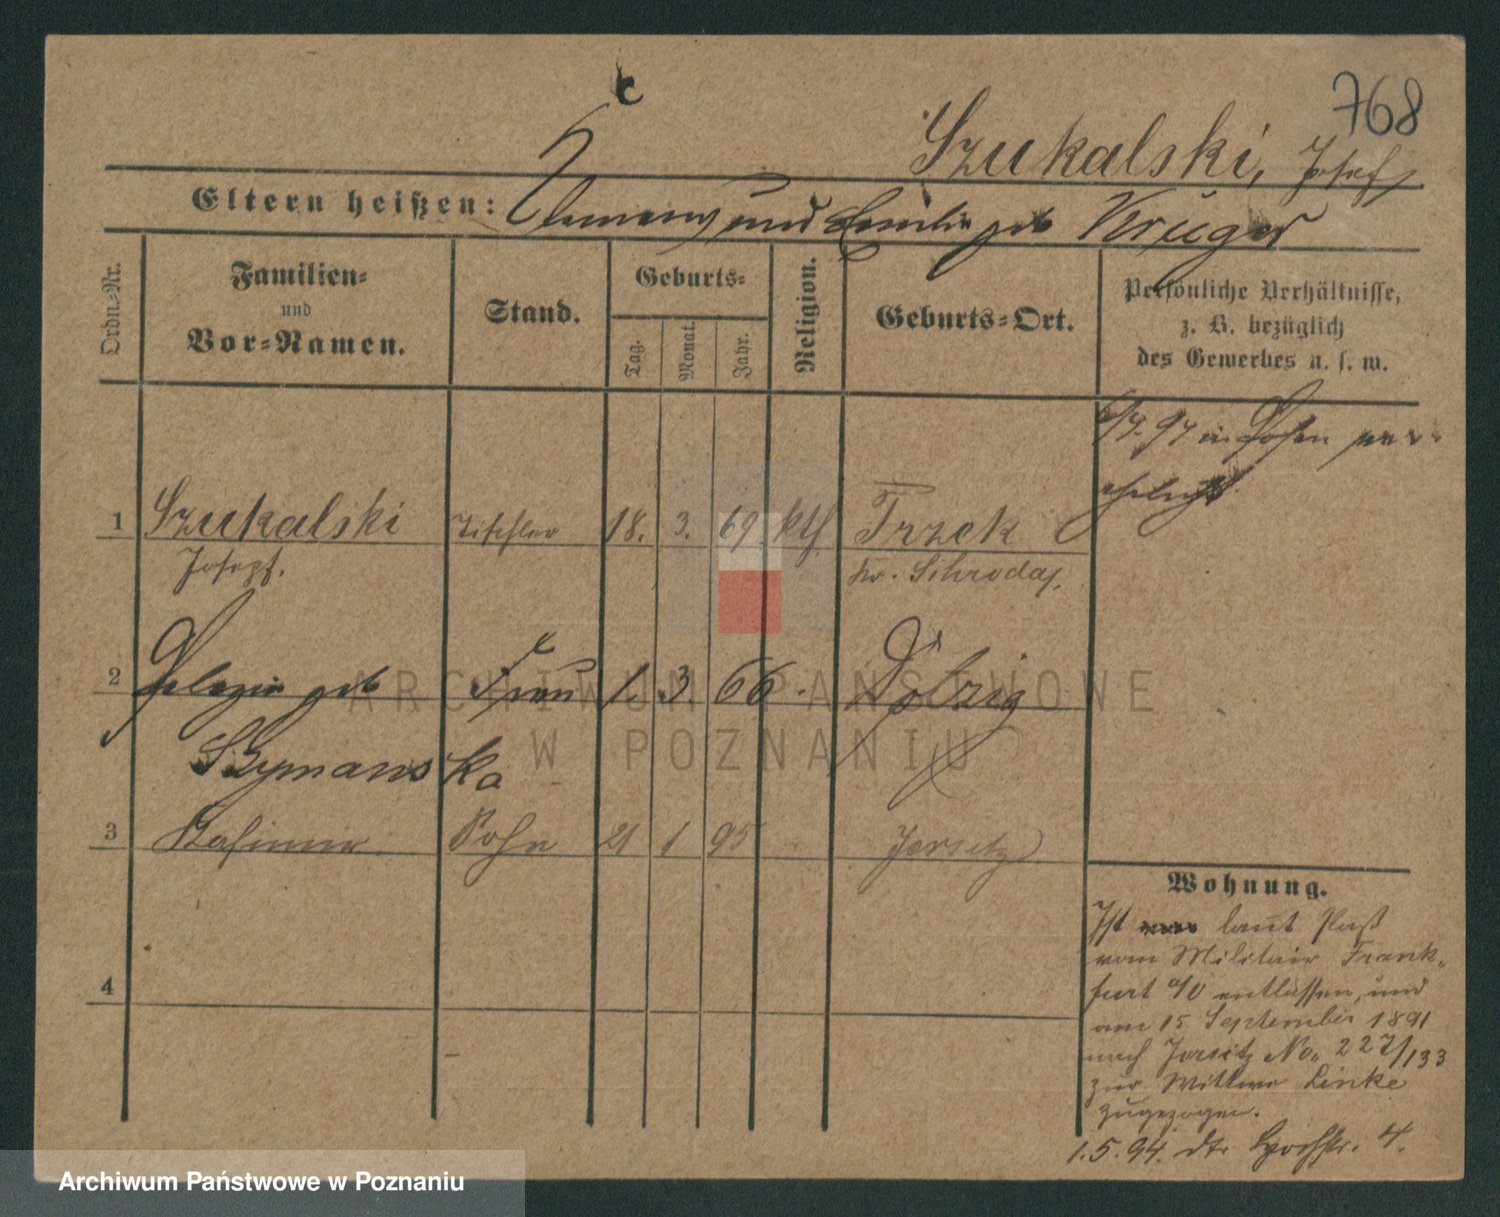 768
Szukalski, Josef
Eltern heißen: Clemens und Emilie geb Krüger
Ordn.-Nr.
Familien-
und
Vor-Namen.
Stand.
Geburts-
Tag.
Monat.
Jahr.
Religion.
Geburts-Ort.
Persönliche Verhältnisse,
z. B. bezüglich
des Gewerbes u. s. w.
97 in Posen ver-
ehelicht
1 Szukalski Tischler 18. 3. 69. kth. Trzek
Josef. Kr. Schroda,
2 Pelagia geb Frau 1. 3 66. Dolzig
Szymanska
3 Kasimir Sohn 21 1 95 Jersitz
4
Wohnung.
Ist laut Paß
vom Militair Frank-
furt a/O entlassen, und
am 15 September 1891
nach Jersitz No. 227/133
zur Wittwe Linke
zugezogen.
1.5.94. dto 4.
ARCHIWUM PAŃSTWOWE
W POZNANIU
Archiwum Państwowe w Poznaniu